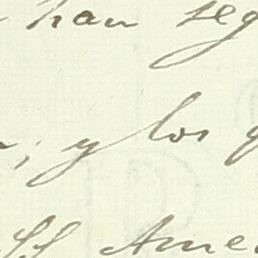 han seg
; y los
Ame